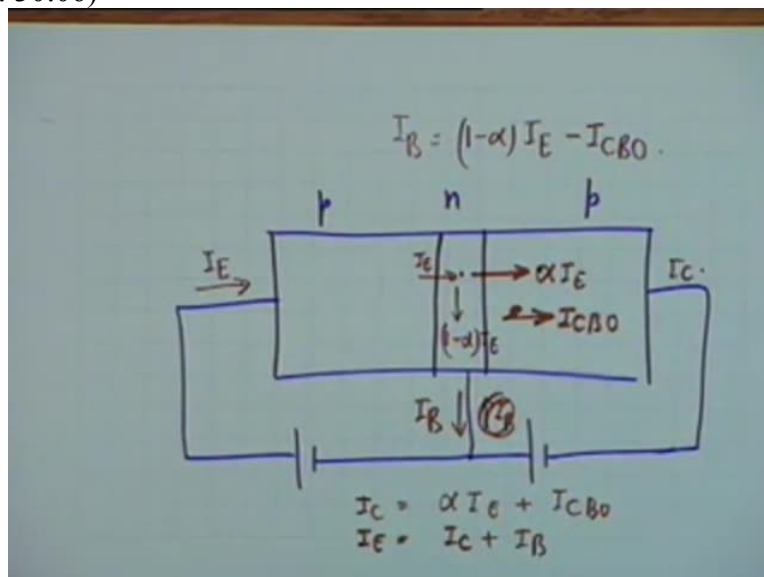 I_B = (1-α) I_E - I_CBO.
p n p
I_E I_E αI_E I_C.
I_CBO
(1-α)I_E
I_B
I_C = αI_E + I_CBO
I_E = I_C + I_B